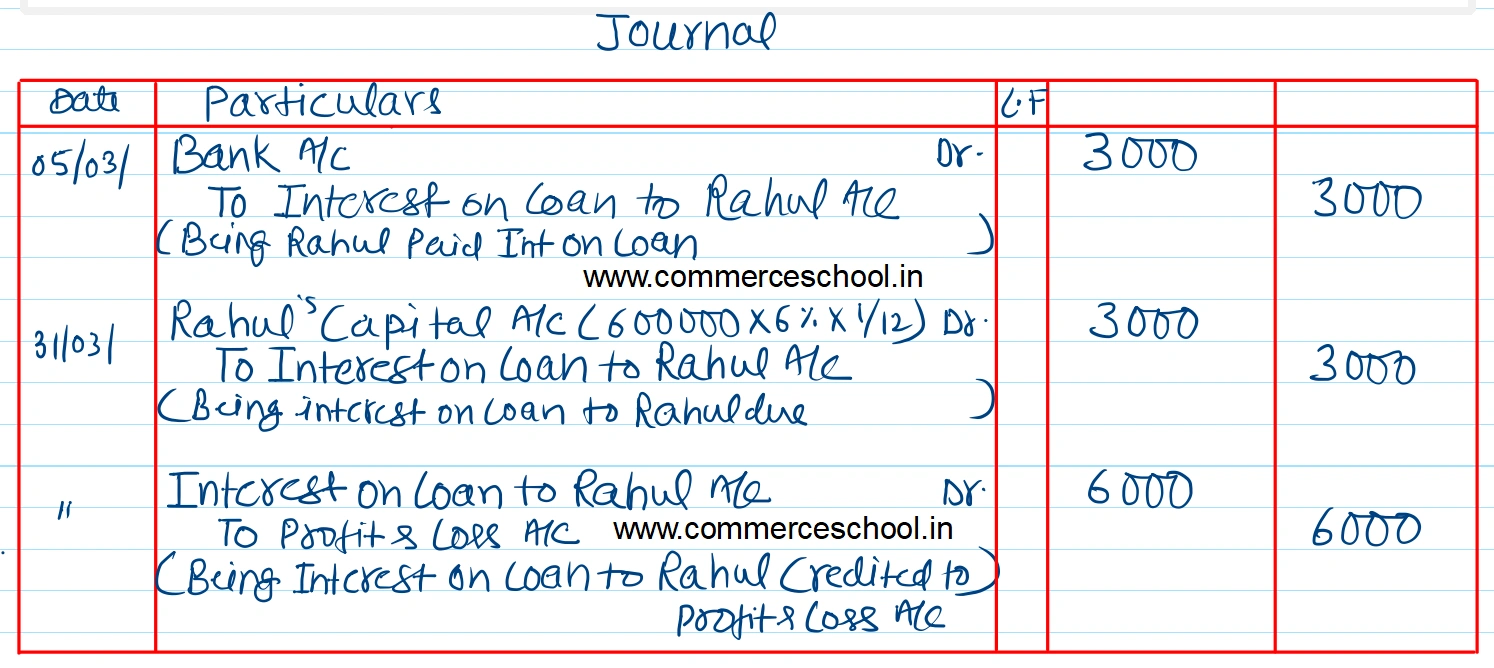 Journal
Date Particulars L.F
05/03/ Bank A/c Dr. 3000
To Interest on Loan to Rahul A/c 3000
(Being Rahul Paid Int on Loan )
www.commerceschool.in
31/03/ Rahul's Capital A/c (600000 X 6% X 1/12) Dr. 3000
To Interest on Loan to Rahul A/c 3000
(Being interest on Loan to Rahul due )
" Interest on Loan to Rahul A/c Dr. 6000
To Profit & Loss A/c www.commerceschool.in 6000
(Being Interest on Loan to Rahul Credited to )
Profit & Loss A/c